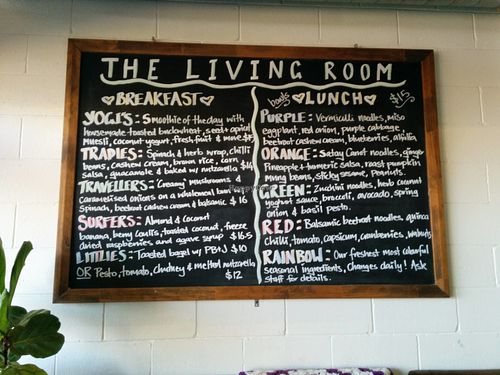 THE LIVING ROOM
BREAKFAST
YOGI'S: Smoothie of the day with
housemade toasted buckwheat, seed + apical
muesli, coconut yogurt, fresh fruit & more
TRADIES: Spinach & herb wrap, chilli
beans, cashew cream, brown rice, corn
salsa, guacamole & baked w/ nutzarella
TRAVELLERS: Creamy mushrooms &
Caramelised onions on a wholemeal bun
Spinach, beetroot cashew cream & balsamic $16
SURFERS: Almond & Coconut
banana, berry coulis, toasted coconut, freeze
dried raspberries and agave syrup $16.5
LITTLIES: Toasted bagel w/ PB+J $10
OR Pesto, tomato, chutney & melted nutzarella
$12
bowls LUNCH $15
PURPLE: Vermicilli noodles, miso
eggplant, red onion, purple cabbage,
beetroot cashew cream, blueberries, alfalfa
ORANGE: Satay Carrot noodles, ginger
Pineapple & turmeric salsa, roast pumpkin
mung beans, sticky sesame, Peanuts.
GREEN: Zucchini noodles, herb coconut
yoghurt sauce, broccoli, avocado, spring
onion & basil pesto.
RED: Balsamic beetroot noodles, quinoa
Chilli, tomato, capsicum, cranberries, walnuts
RAINBOW: Our freshest most colourful
seasonal ingredients, Changes daily! Ask
staff for details.